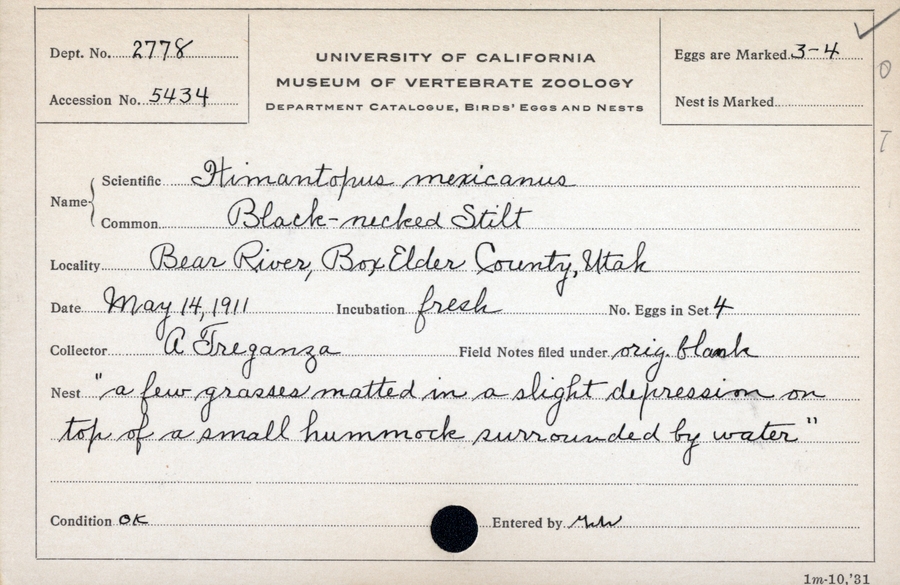 Dept. No. 2778
Accession No. 5434
UNIVERSITY OF CALIFORNIA
MUSEUM OF VERTEBRATE ZOOLOGY
DEPARTMENT CATALOGUE, BIRDS' EGGS AND NESTS
Eggs are Marked 3-4
Nest is Marked
Name
Scientific Himantopus mexicanus
Common Black-necked Stilt
Locality Bear River, Box Elder County, Utah
Date May 14, 1911 Incubation fresh No. Eggs in Set 4
Collector A Treganza Field Notes filed under orig. blank
Nest "a few grasses matted in a slight depression on
top of a small hummock surrounded by water"
Condition OK Entered by
1m-10,'31